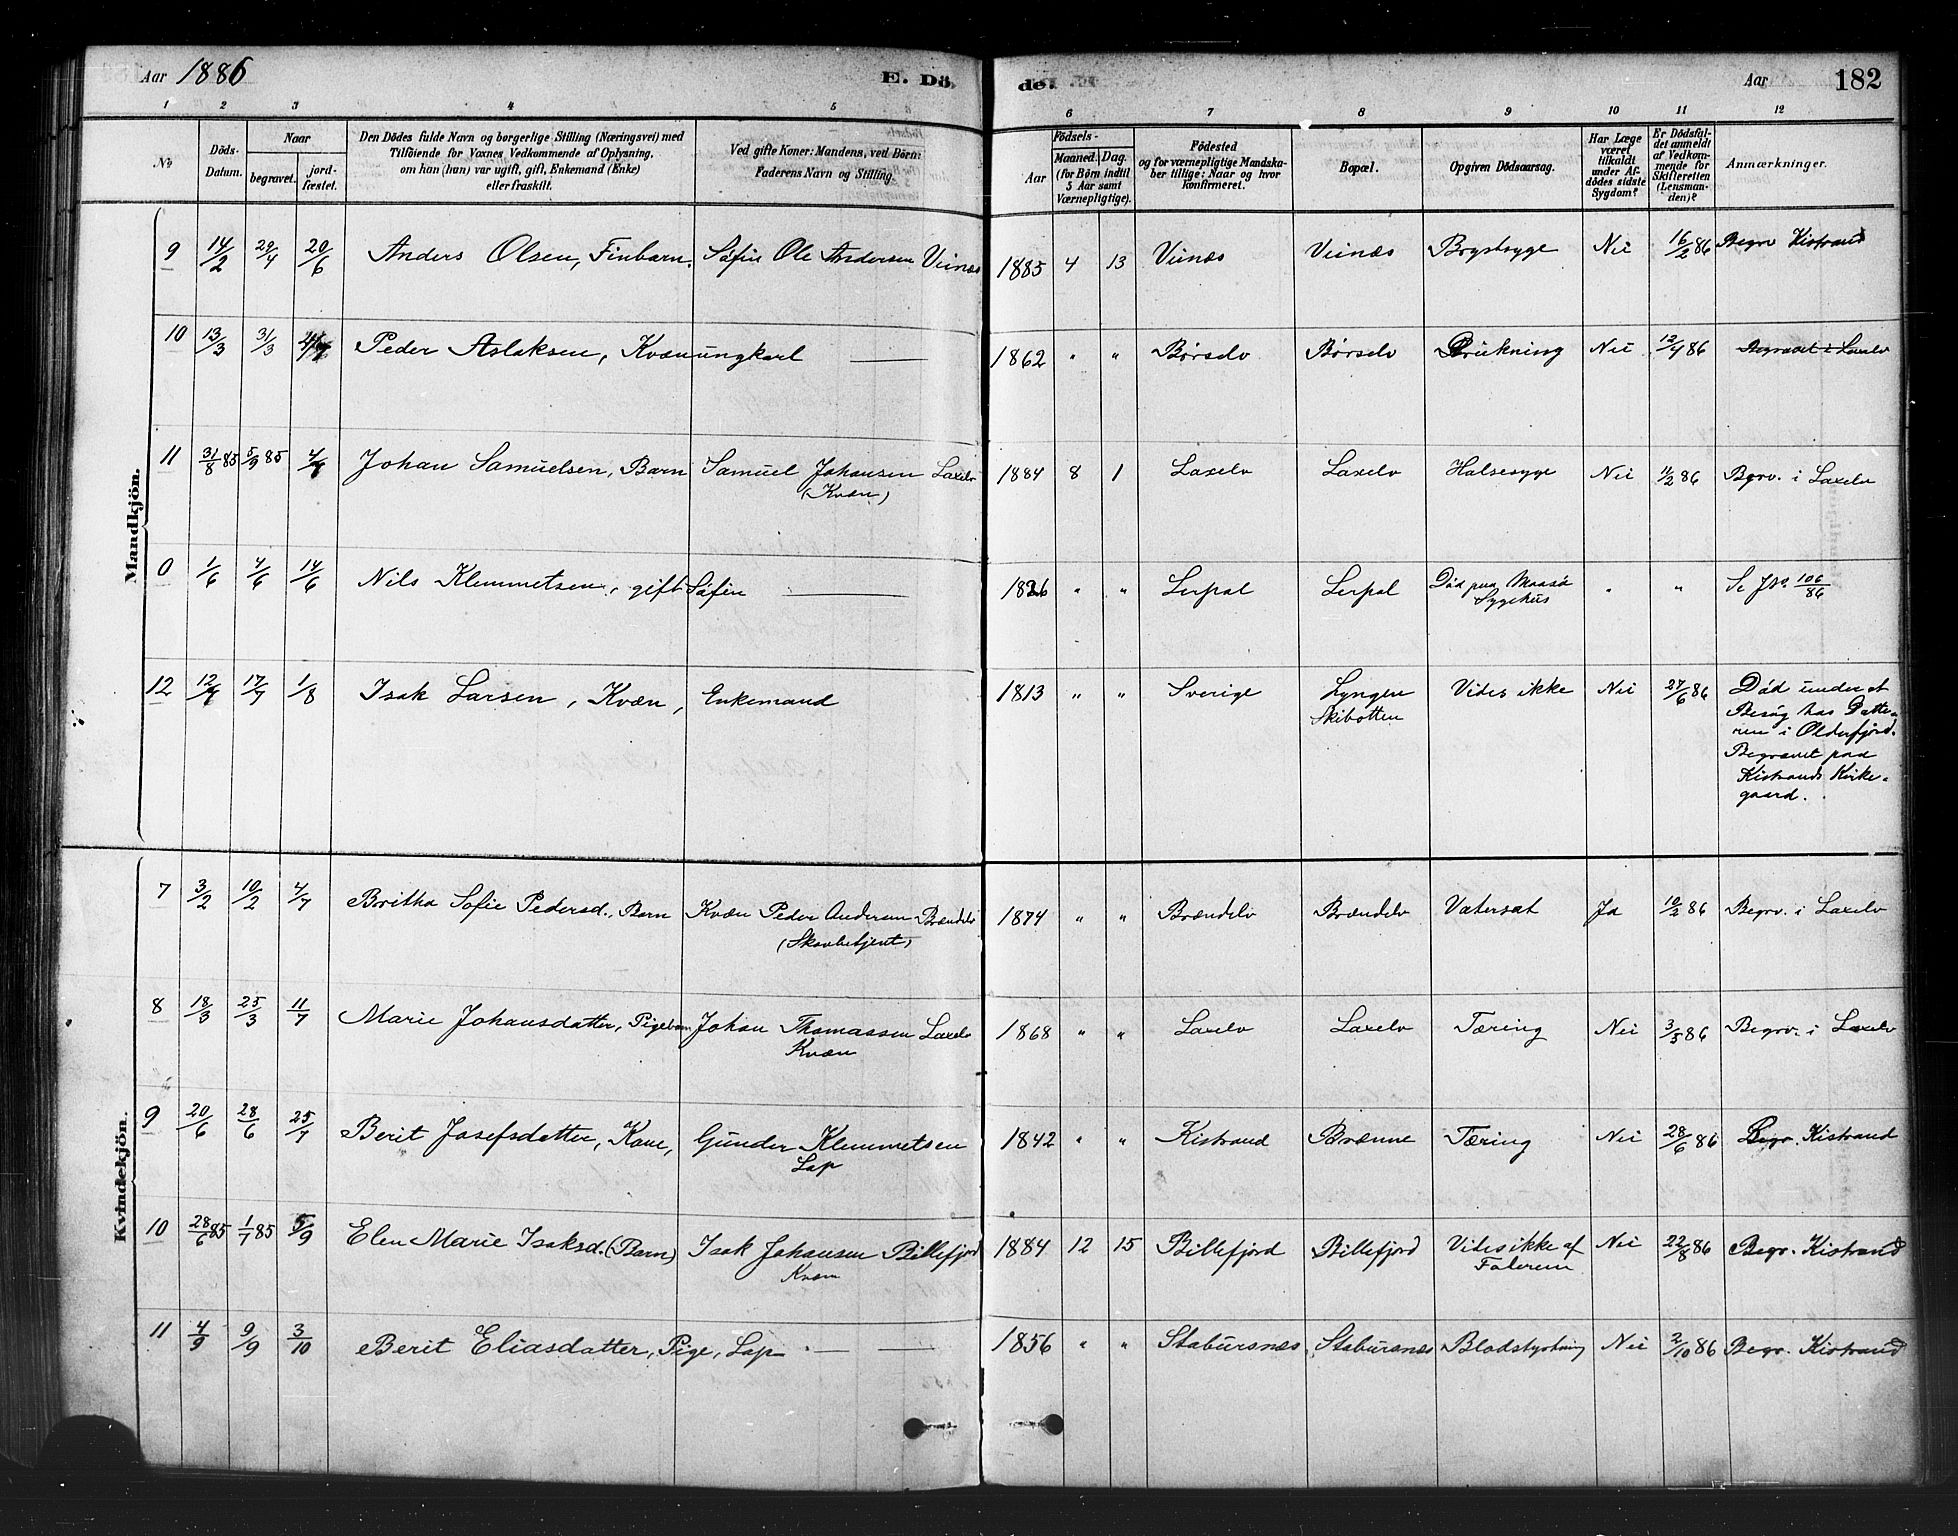 Aar 1886 E. Döde. Aar 182
1 2 3 4 5 6 7 8 9 10 11 12
No
Döds-Datum.
Naar
begravet.
jordfæstet.
Den Dödes fulde Navn og borgerlige Stilling (Næringsvei) med
Tilföiende for Voxnes Vedkommende af Oplysning,
om han (hun) var ugift, gift, Enkemand (Enke)
eller fraskilt.
Ved gifte Koner: Mandens, ved Börn:
Faderens Navn og Stilling.
Födsels-
Aar
Maaned. Dag.
(for Börn indtil
5 Aar samt
Værnepligtige).
Födested
og for værnepligtige Mandska-
ber tillige: Naar og hvor
konfirmeret.
Bopæl.
Opgiven Dödsaarsag.
Har Læge
været
tilkaldt
under Af-
dödes sidste
Sygdom?
Er Dödsfal-
det anmeldt
af Vedkom-
mende for
Skifteretten
(Lensman-
den)?
Anmærkninger.
Mandkjön.
9 14/2 29/4 20/6 Anders Olsen, Finbarn. Søfin Ole Andersen Veinæs 1885 4 13 Veinæs Veinæs Brystsyge Nei 16/2 86 Begr Kistrand
10 13/3 31/3 Peder Aslaksen, Kvænungkarl — 1862 " " Børselv Børselv Drukning Nei 12/4 86 Begravet i Laxelv
11 31/8 85 5/9 85 Johan Samuelsen, Barn Samuel Johansen Laxelv 1884 8 1 Laxelv Laxelv Halssyge Nei 11/2 86 Begrv. i Laxelv
(Kvæn)
0 1/6 4/6 14/6 Nils Klemmetsen, gift Søfin — 1826 " " Lerpol Lerpol Død paa Maasø " " Se JNo 106/86
Sygehus
12 12/7 17/7 1/8 Isak Larsen, Kvæn, Enkemand 1813 " " Sverige Lyngen Vides ikke Nei 27/6 86 Død under et
Skibotten
Besøg hos Datte-
ren i Olderfjord.
Begravet paa
Kistrands Kirke-
gaard.
Kvindekjön.
7 3/2 10/2 4/7 Britha Sofie Pedersd., Barn Kvæn Peder Andersen Brændelv 1874 " " Brændelv Brændelv Vatersot Ja 10/2 86 Begrv. i Laxelv
(Skovbetjent)
8 18/3 25/3 11/7 Marie Johansdatter, Pigebarn Johan Thomassen Laxelv 1868 " " Laxelv Laxelv Tæring Nei 3/5 86 Begrv. i Laxelv
Kvæn
9 20/6 28/6 25/7 Berit Josefsdatter, Kone, Gunder Klemmetsen 1842 " " Kistrand Brænne Tæring Nei 28/6 86 Begr. Kistrand
Lap
10 28/6 85 1/7 85 5/9 Elen Marie Isaksd. (Barn) Isak Johansen Billefjord 1884 12 15 Billefjord Billefjord Vides ikke af Nei 22/8 86 Begr. Kistrand
Kvæn Faderen
11 4/9 9/9 3/10 Berit Eliasdatter, Pige, Lap — — 1856 " " Stabursnæs Stabursnæs Blodstyrtning Nei 2/10 86 Begr. Kistrand